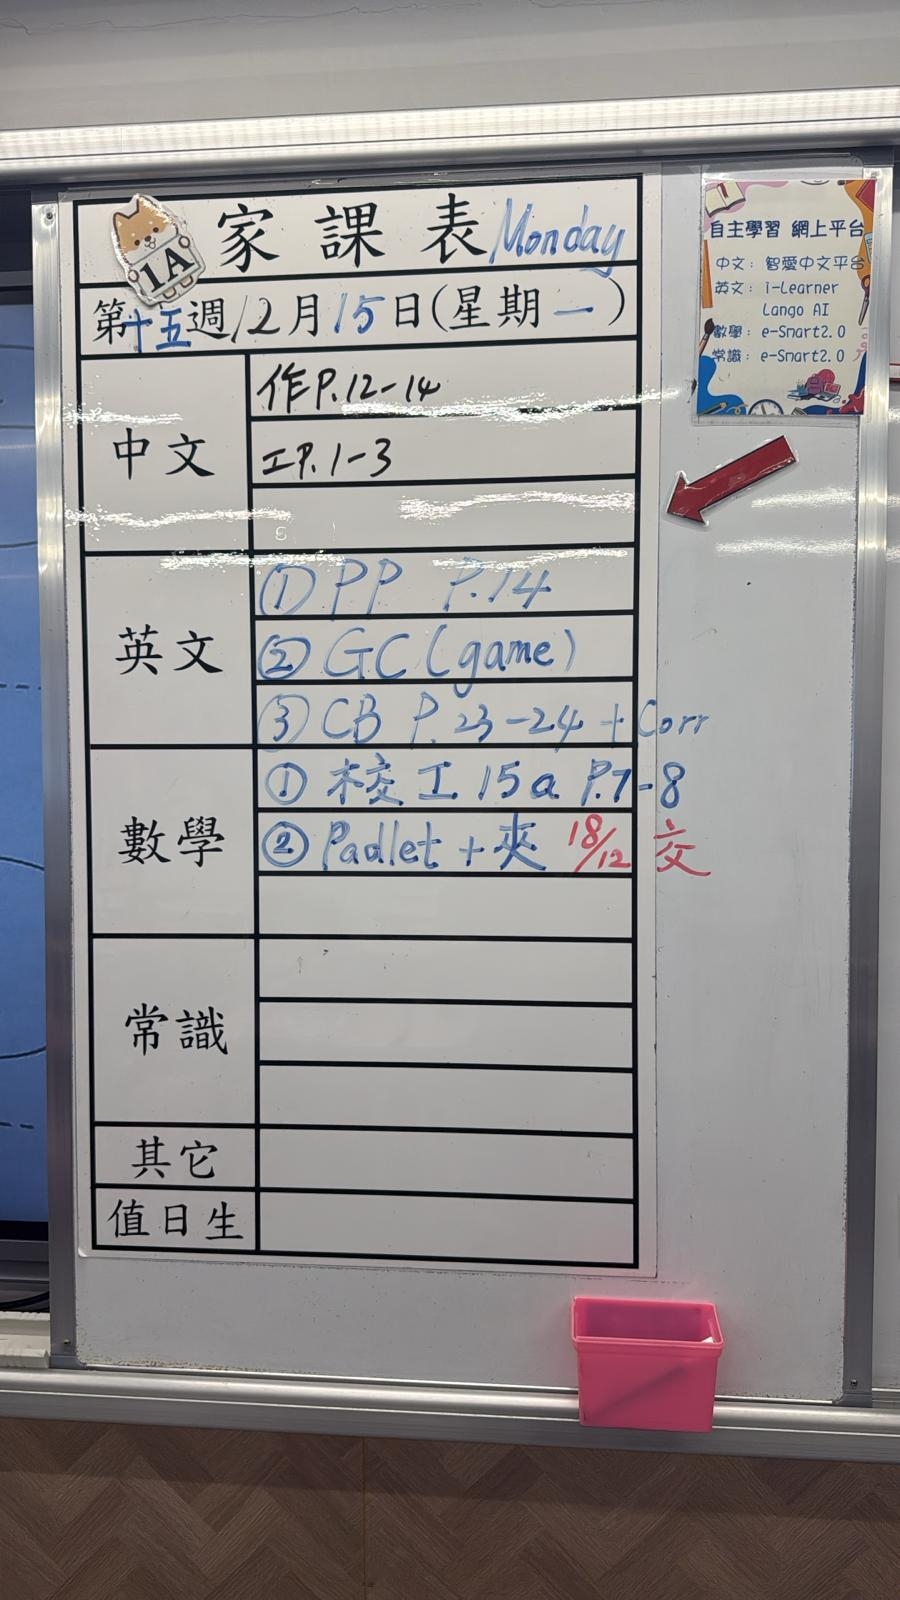 1A
家課表 Monday
第十五週12月15日(星期一)
中文
作P.12-14
工P.1-3
英文
① PP P.14
② GC (game)
③ CB P.23-24 + Corr
數學
① 校工 15a P.7-8
② Padlet + 夾 18/12 交
常識
其它
值日生
自主學習 網上平台
中文: 智愛中文平台
英文: i-Learner
Lango AI
數學: e-Smart2.0
常識: e-Smart2.0